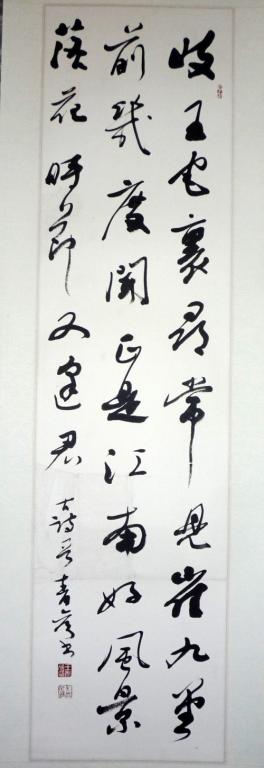 岐王宅裏尋常見崔九堂
前幾度聞正是江南好風景
落花時節又逢君
古詩一首